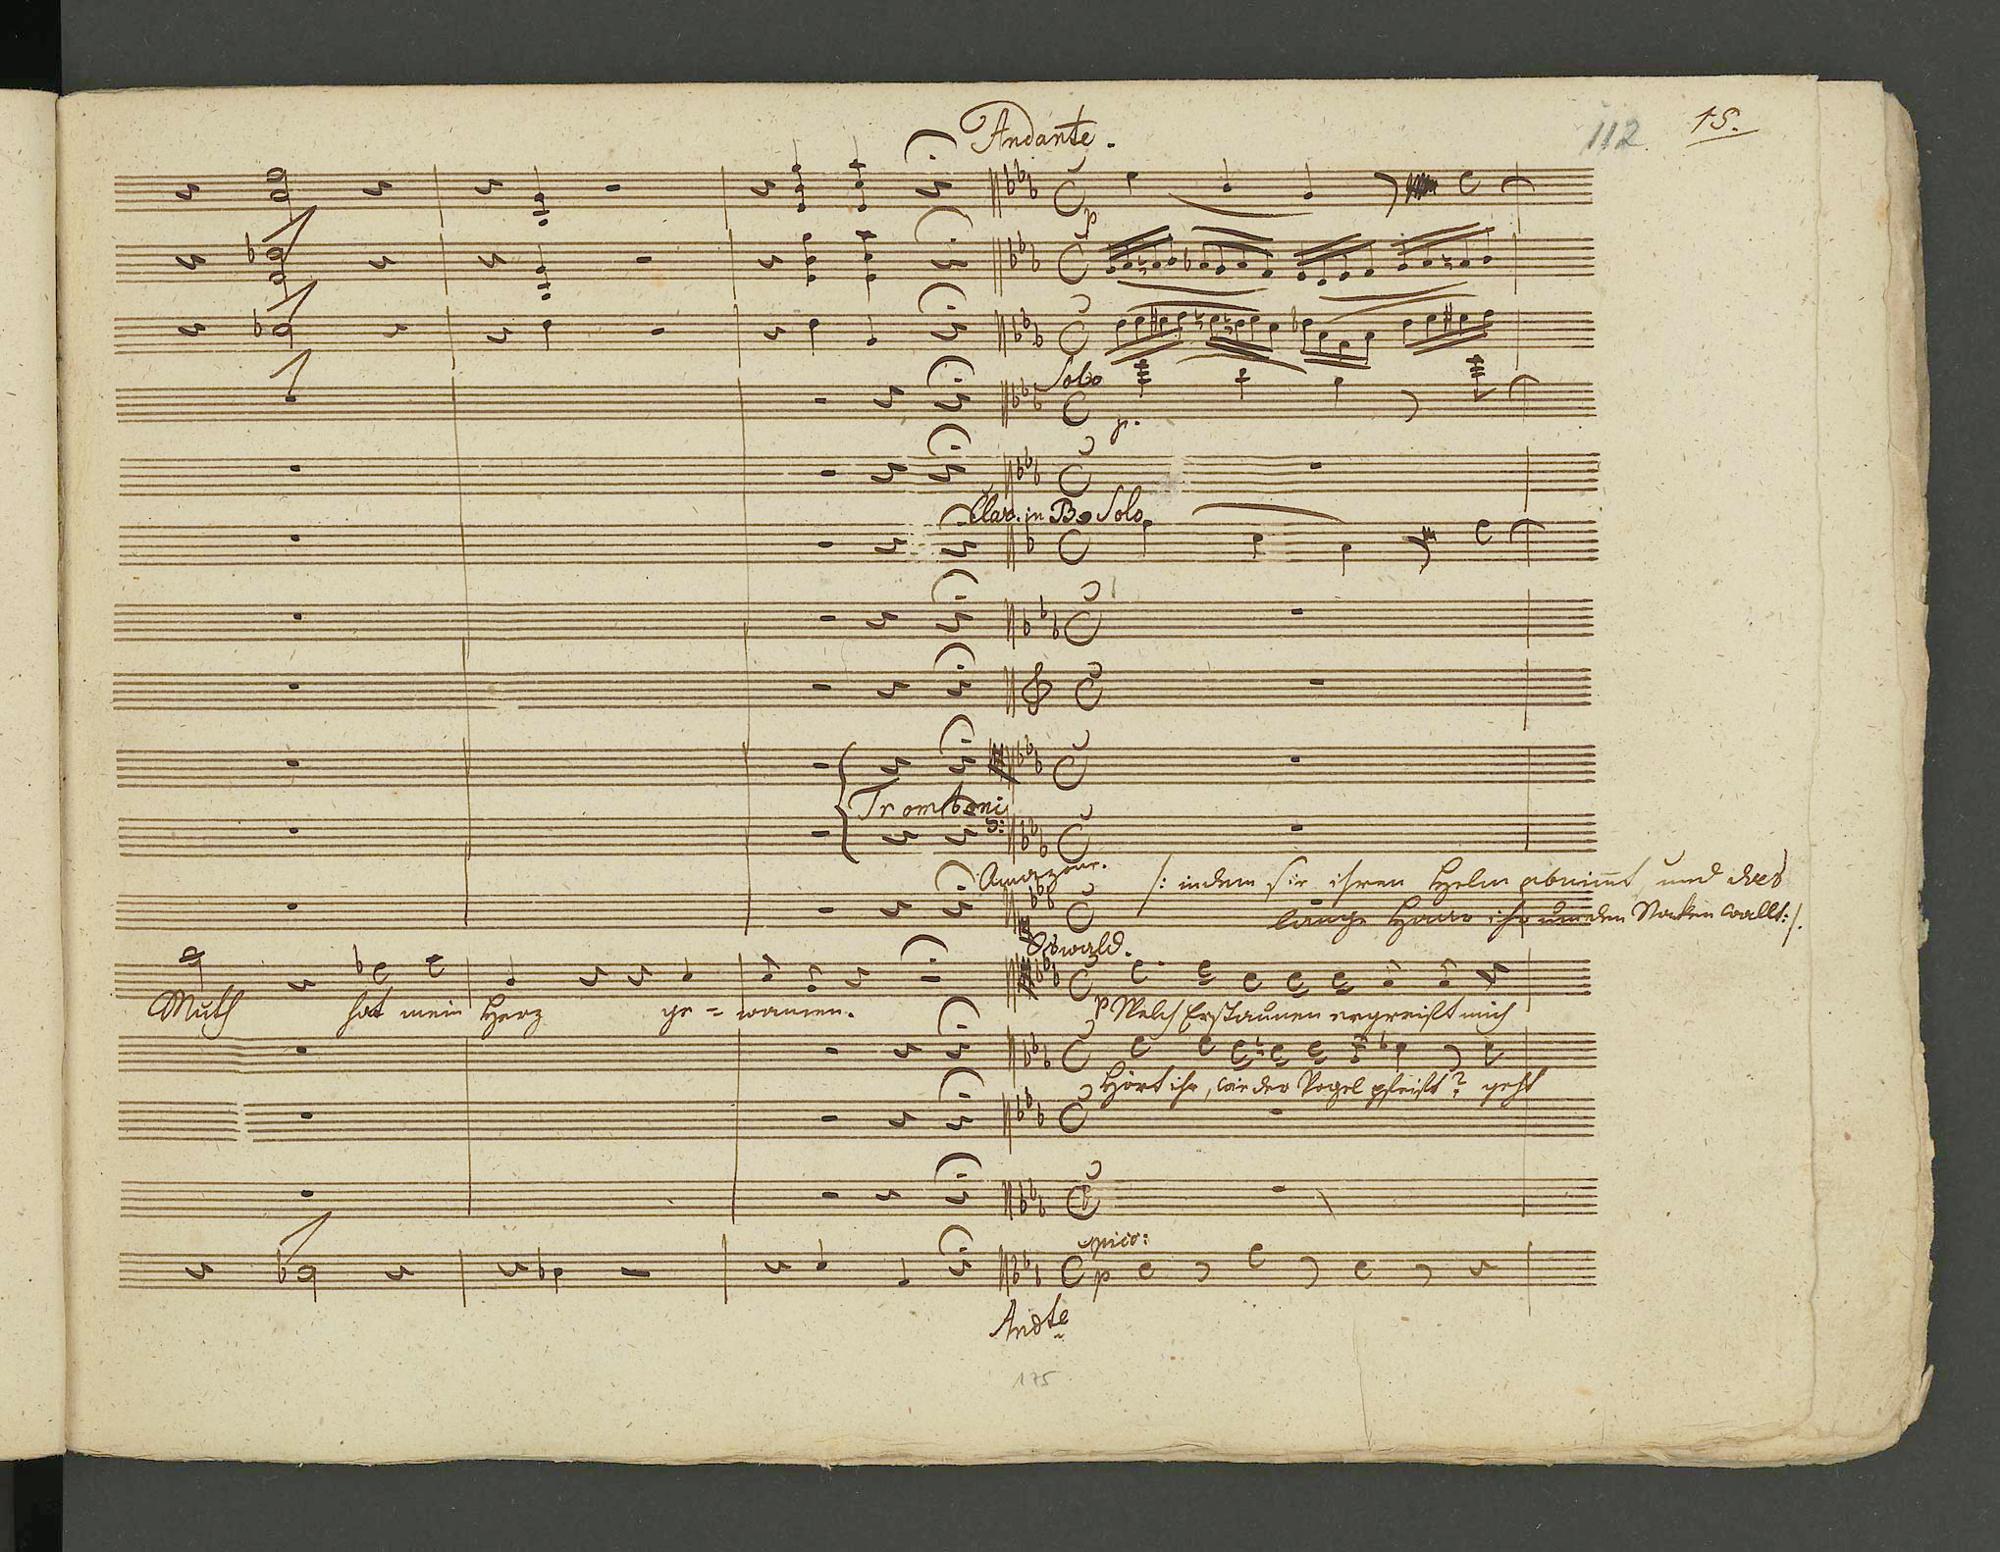 Andante.
112
15.
p
Solo
p.
Clar. in B. Solo
Tromboni
Amazone.
/: indem sie ihren Helm abnimt, und das
lange Haar ihr um den Nacken wallt :/.
Oswald.
Muth hat mein Herz ge = wonnen.
p Welch Erstaunen ergreift mich
Hört ihr, wie der Vogel pfeift? geht
p
Andte
175